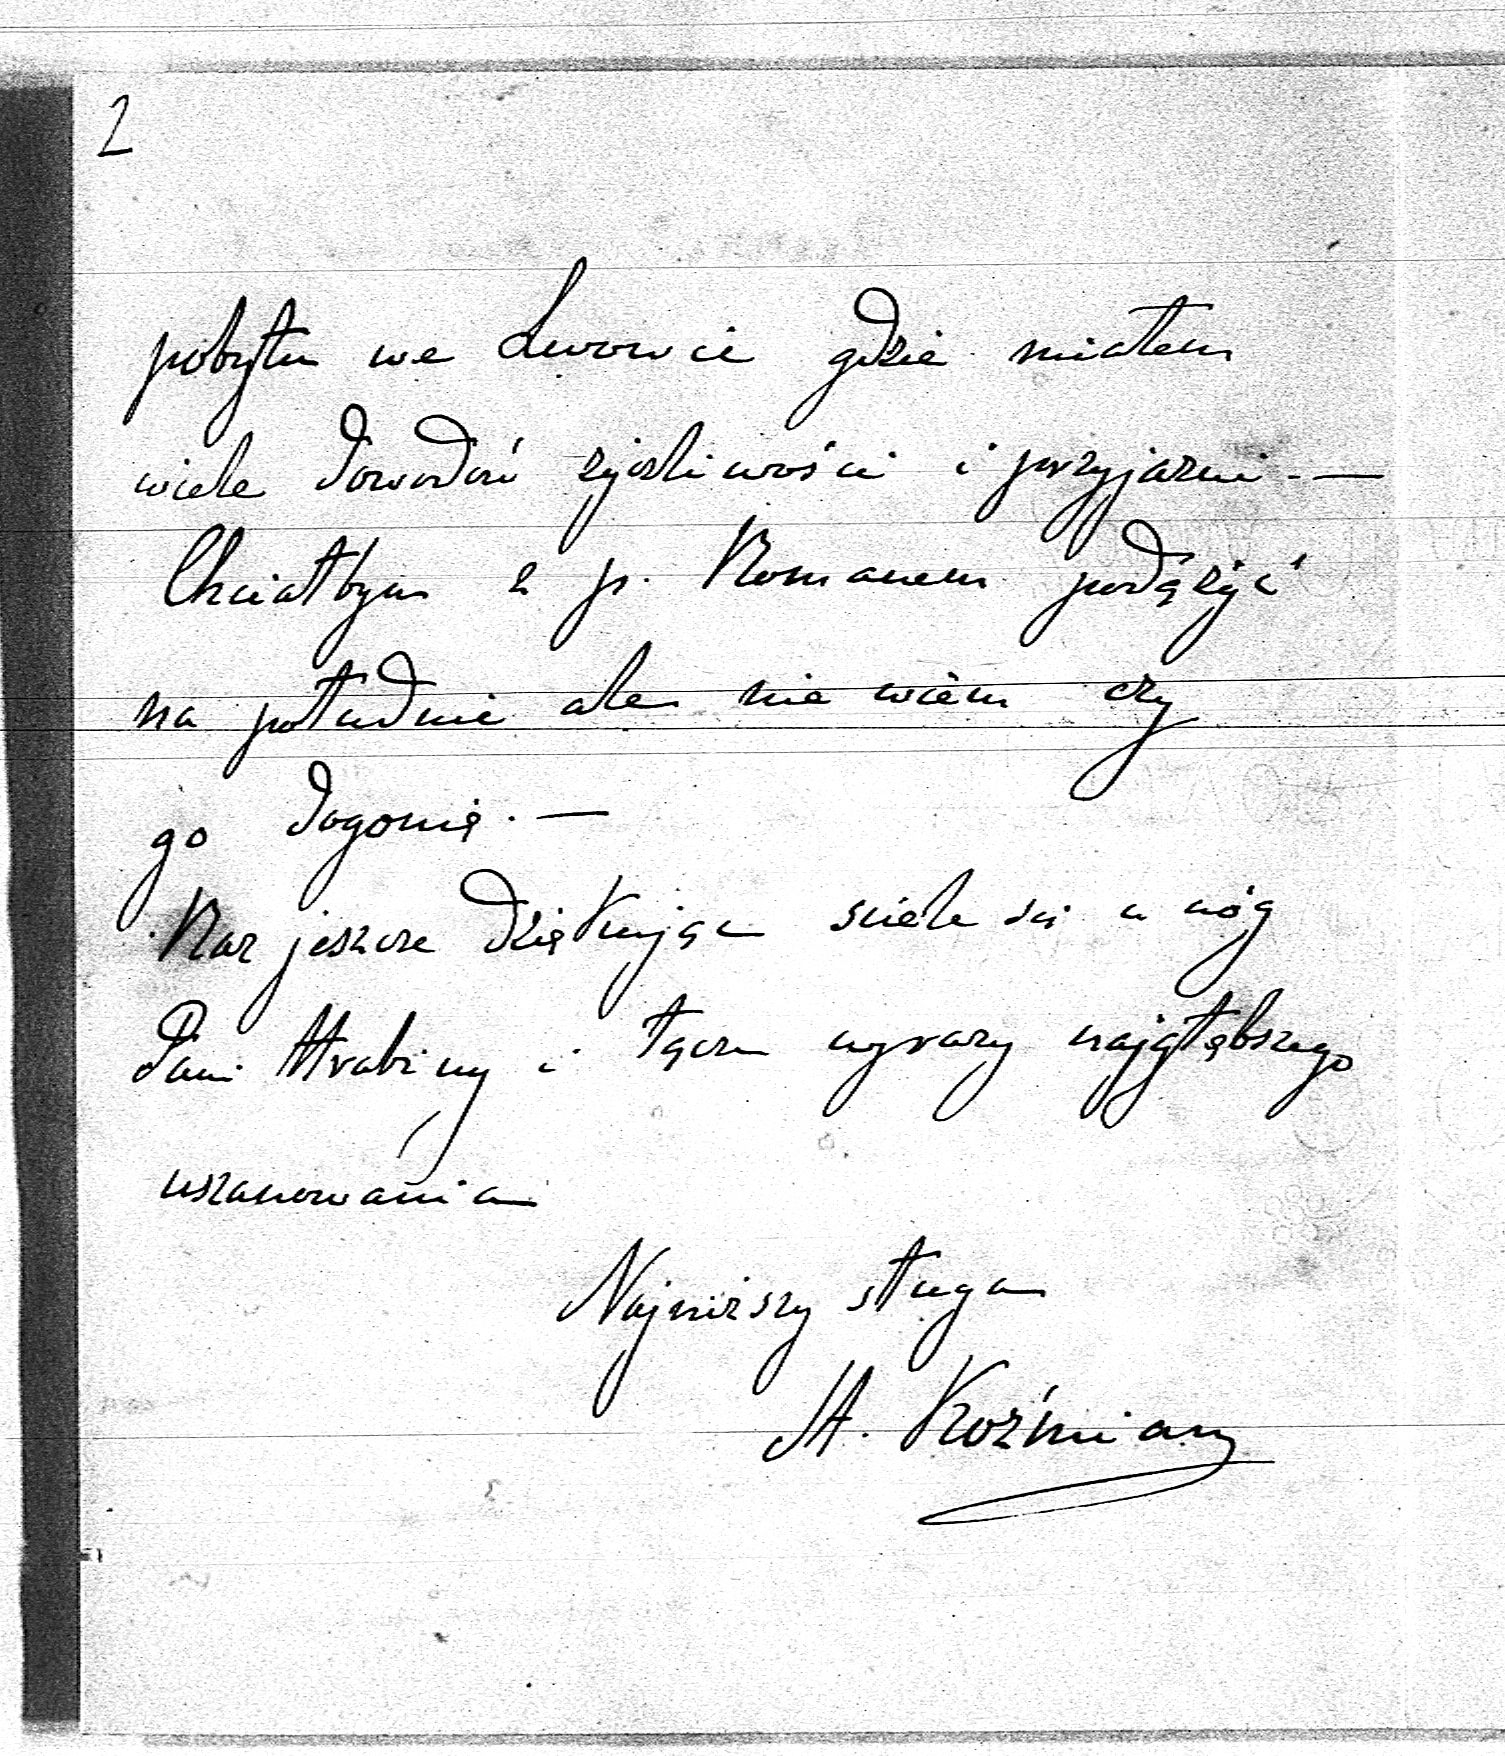 2
pobytu we Lwowie gdzie miałem
wiele dowodów życzliwości i przyjaźni. —
Chciałbym z p. Romanem podążyć
na południe ale nie wiem czy
go dogonię. —
Raz jeszcze dziękując ściele się u nóg
Pani Hrabiny i łączę wyrazy najgłębszego
uszanowania
Najniższy sługa
St. Koźmian